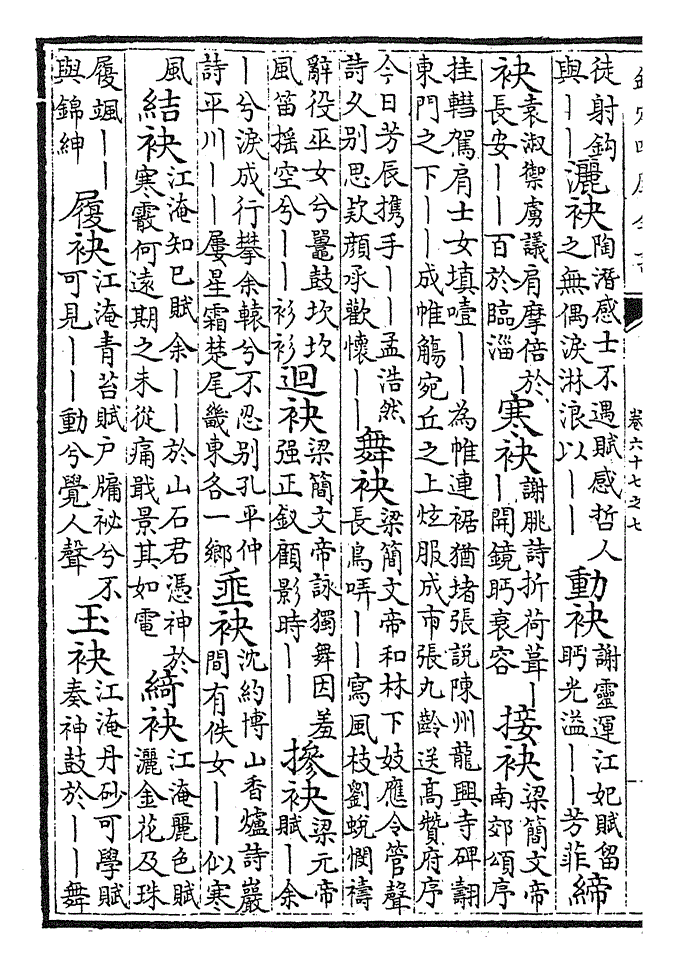 卷六十七之七
徒射鈎
與丨丨
灑袂
陶潛感士不遇賦感哲人
之無偶淚淋浪以丨丨
動袂
謝靈運江妃賦留
眄光溢丨丨芳菲
締
袂
袁淑禦虜議肩摩倍於
長安丨丨百於臨淄
寒袂
謝朓詩折荷葺丨
丨開鏡眄衰容
接袂
梁簡文帝
南郊頌序
挂轊駕肩士女填噎丨丨為帷連裾猶堵張說陳州龍興寺碑翻
東門之下丨丨成帷觴宛丘之上炫服成市張九齡送高贊府序
今日芳辰携手丨丨孟浩然
詩久别思欵顔承歡懷丨丨
舞袂
梁簡文帝和林下妓應令管聲
長鳥哢丨丨寫風枝劉蛻憫禱
辭役巫女兮鼉鼓坎坎
風笛摇空兮丨丨衫衫
迴袂
梁簡文帝詠獨舞因羞
强正釵顧影時丨丨
摻袂
梁元帝
賦丨余
丨兮淚成行攀余轅兮不忍别孔平仲
詩平川丨丨屢星霜楚尾畿東各一鄉
垂袂
沈約博山香爐詩巖
間有佚女丨丨似寒
風
結袂
江淹知已賦余丨丨於山石君憑神於
寒霰何遠期之未從痛戢景其如電
綺袂
江淹麗色賦
灑金花及珠
履颯丨丨
與錦紳
履袂
江淹青苔賦户牖袐兮不
可見丨丨動兮覺人聲
玉袂
江淹丹砂可學賦
奏神鼓於丨丨舞